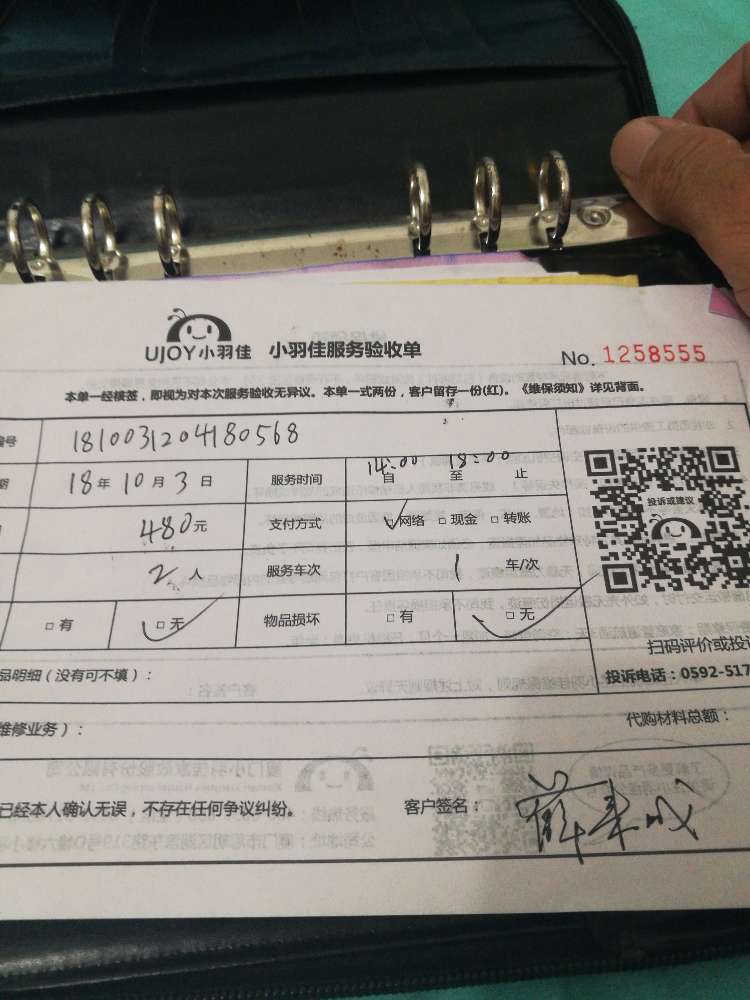 UJOY小羽佳 小羽佳服务验收单
No. 1258555
本单一经核签，即视为对本次服务验收无异议。本单一式两份，客户留存一份(红)。《维保须知》详见背面。
编号 181003120418056 8
期 18年10月3日 服务时间 14:00 自 至 18:00 止
480元 支付方式 ☑网络 □现金 □转账
投诉或建议
2人 服务车次 1 车/次
□有 ☑无 物品损坏 □有 ☑无
扫码评价或投诉
品明细（没有可不填）：
投诉电话：0592-517
维修业务）：
代购材料总额：
已经本人确认无误，不存在任何争议纠纷。 客户签名：